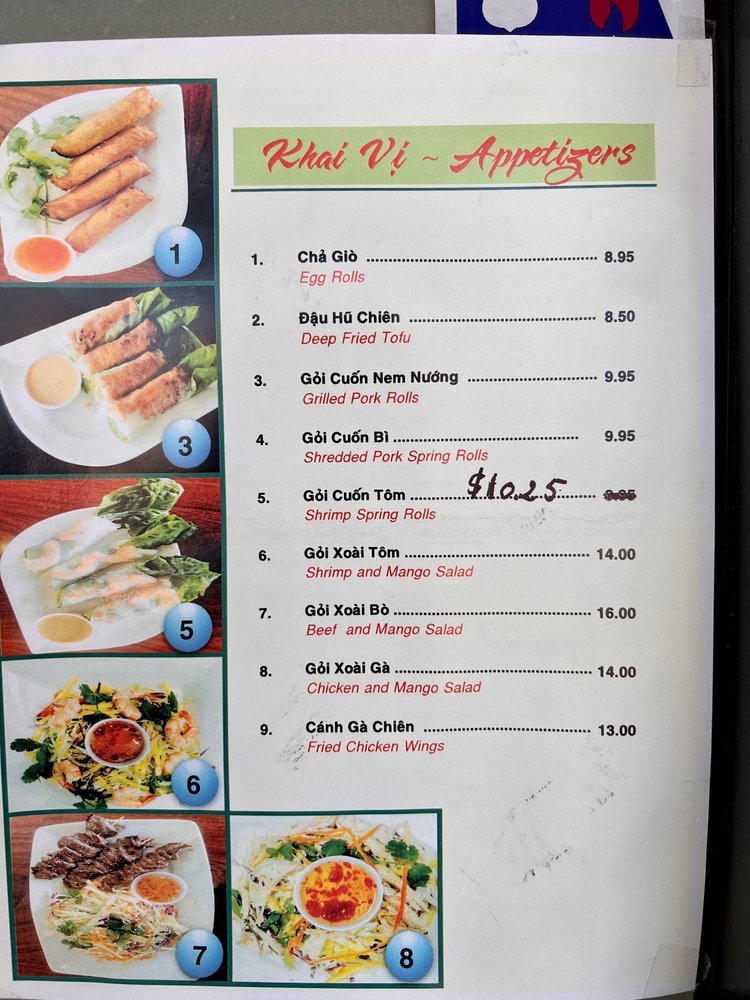 Khai Vị ~ Appetizers
1. Chả Giò 8.95
Egg Rolls
2. Đậu Hũ Chiên 8.50
Deep Fried Tofu
3. Gỏi Cuốn Nem Nướng 9.95
Grilled Pork Rolls
4. Gỏi Cuốn Bì 9.95
Shredded Pork Spring Rolls
5. Gỏi Cuốn Tôm $10.25 9.95
Shrimp Spring Rolls
6. Gỏi Xoài Tôm 14.00
Shrimp and Mango Salad
7. Gỏi Xoài Bò 16.00
Beef and Mango Salad
8. Gỏi Xoài Gà 14.00
Chicken and Mango Salad
9. Cánh Gà Chiên 13.00
Fried Chicken Wings
1
3
5
6
7
8